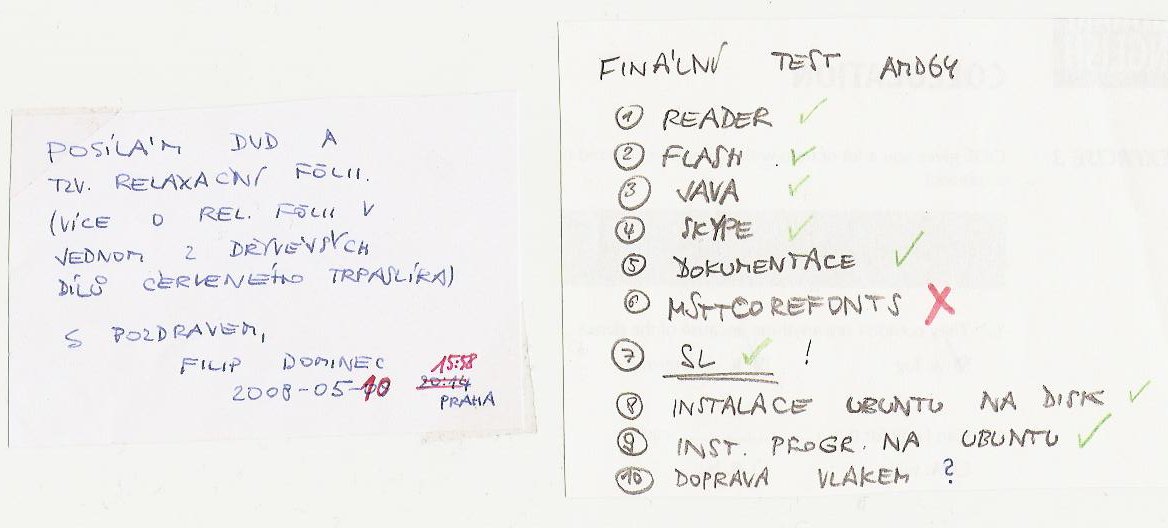 POSÍLÁM DVD A
TZV. RELAXAČNÍ FÓLII.
(VÍCE O REL. FÓLII V
JEDNOM Z DŘÍVĚJŠÍCH
DÍLŮ ČERVENÉHO TRPASLÍKA)
S POZDRAVEM,
FILIP DOMINEC
2008-05-10 15:58
20:14
PRAHA
FINÁLNÍ TEST AMD64
1 READER ✓
2 FLASH ✓
3 JAVA ✓
4 SKYPE ✓
5 DOKUMENTACE ✓
6 MSTTCOREFONTS X
7 SL ✓ !
8 INSTALACE UBUNTU NA DISK ✓
9 INST. PROGR. NA UBUNTU ✓
10 DOPRAVA VLAKEM ?